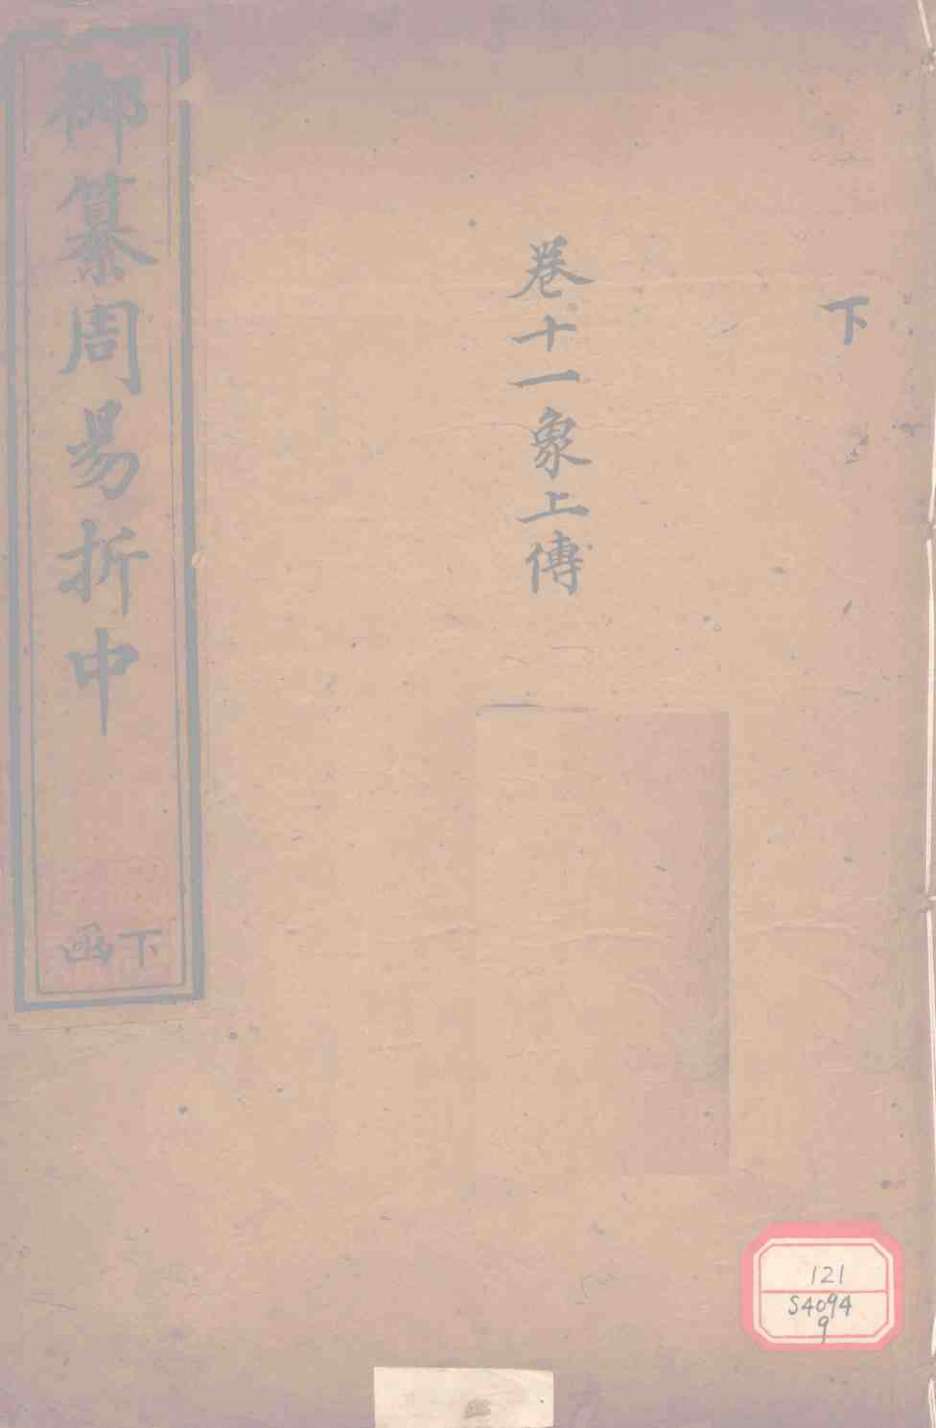 下
卷十一象上傳
御纂周易折中
下函
121
S4094
9